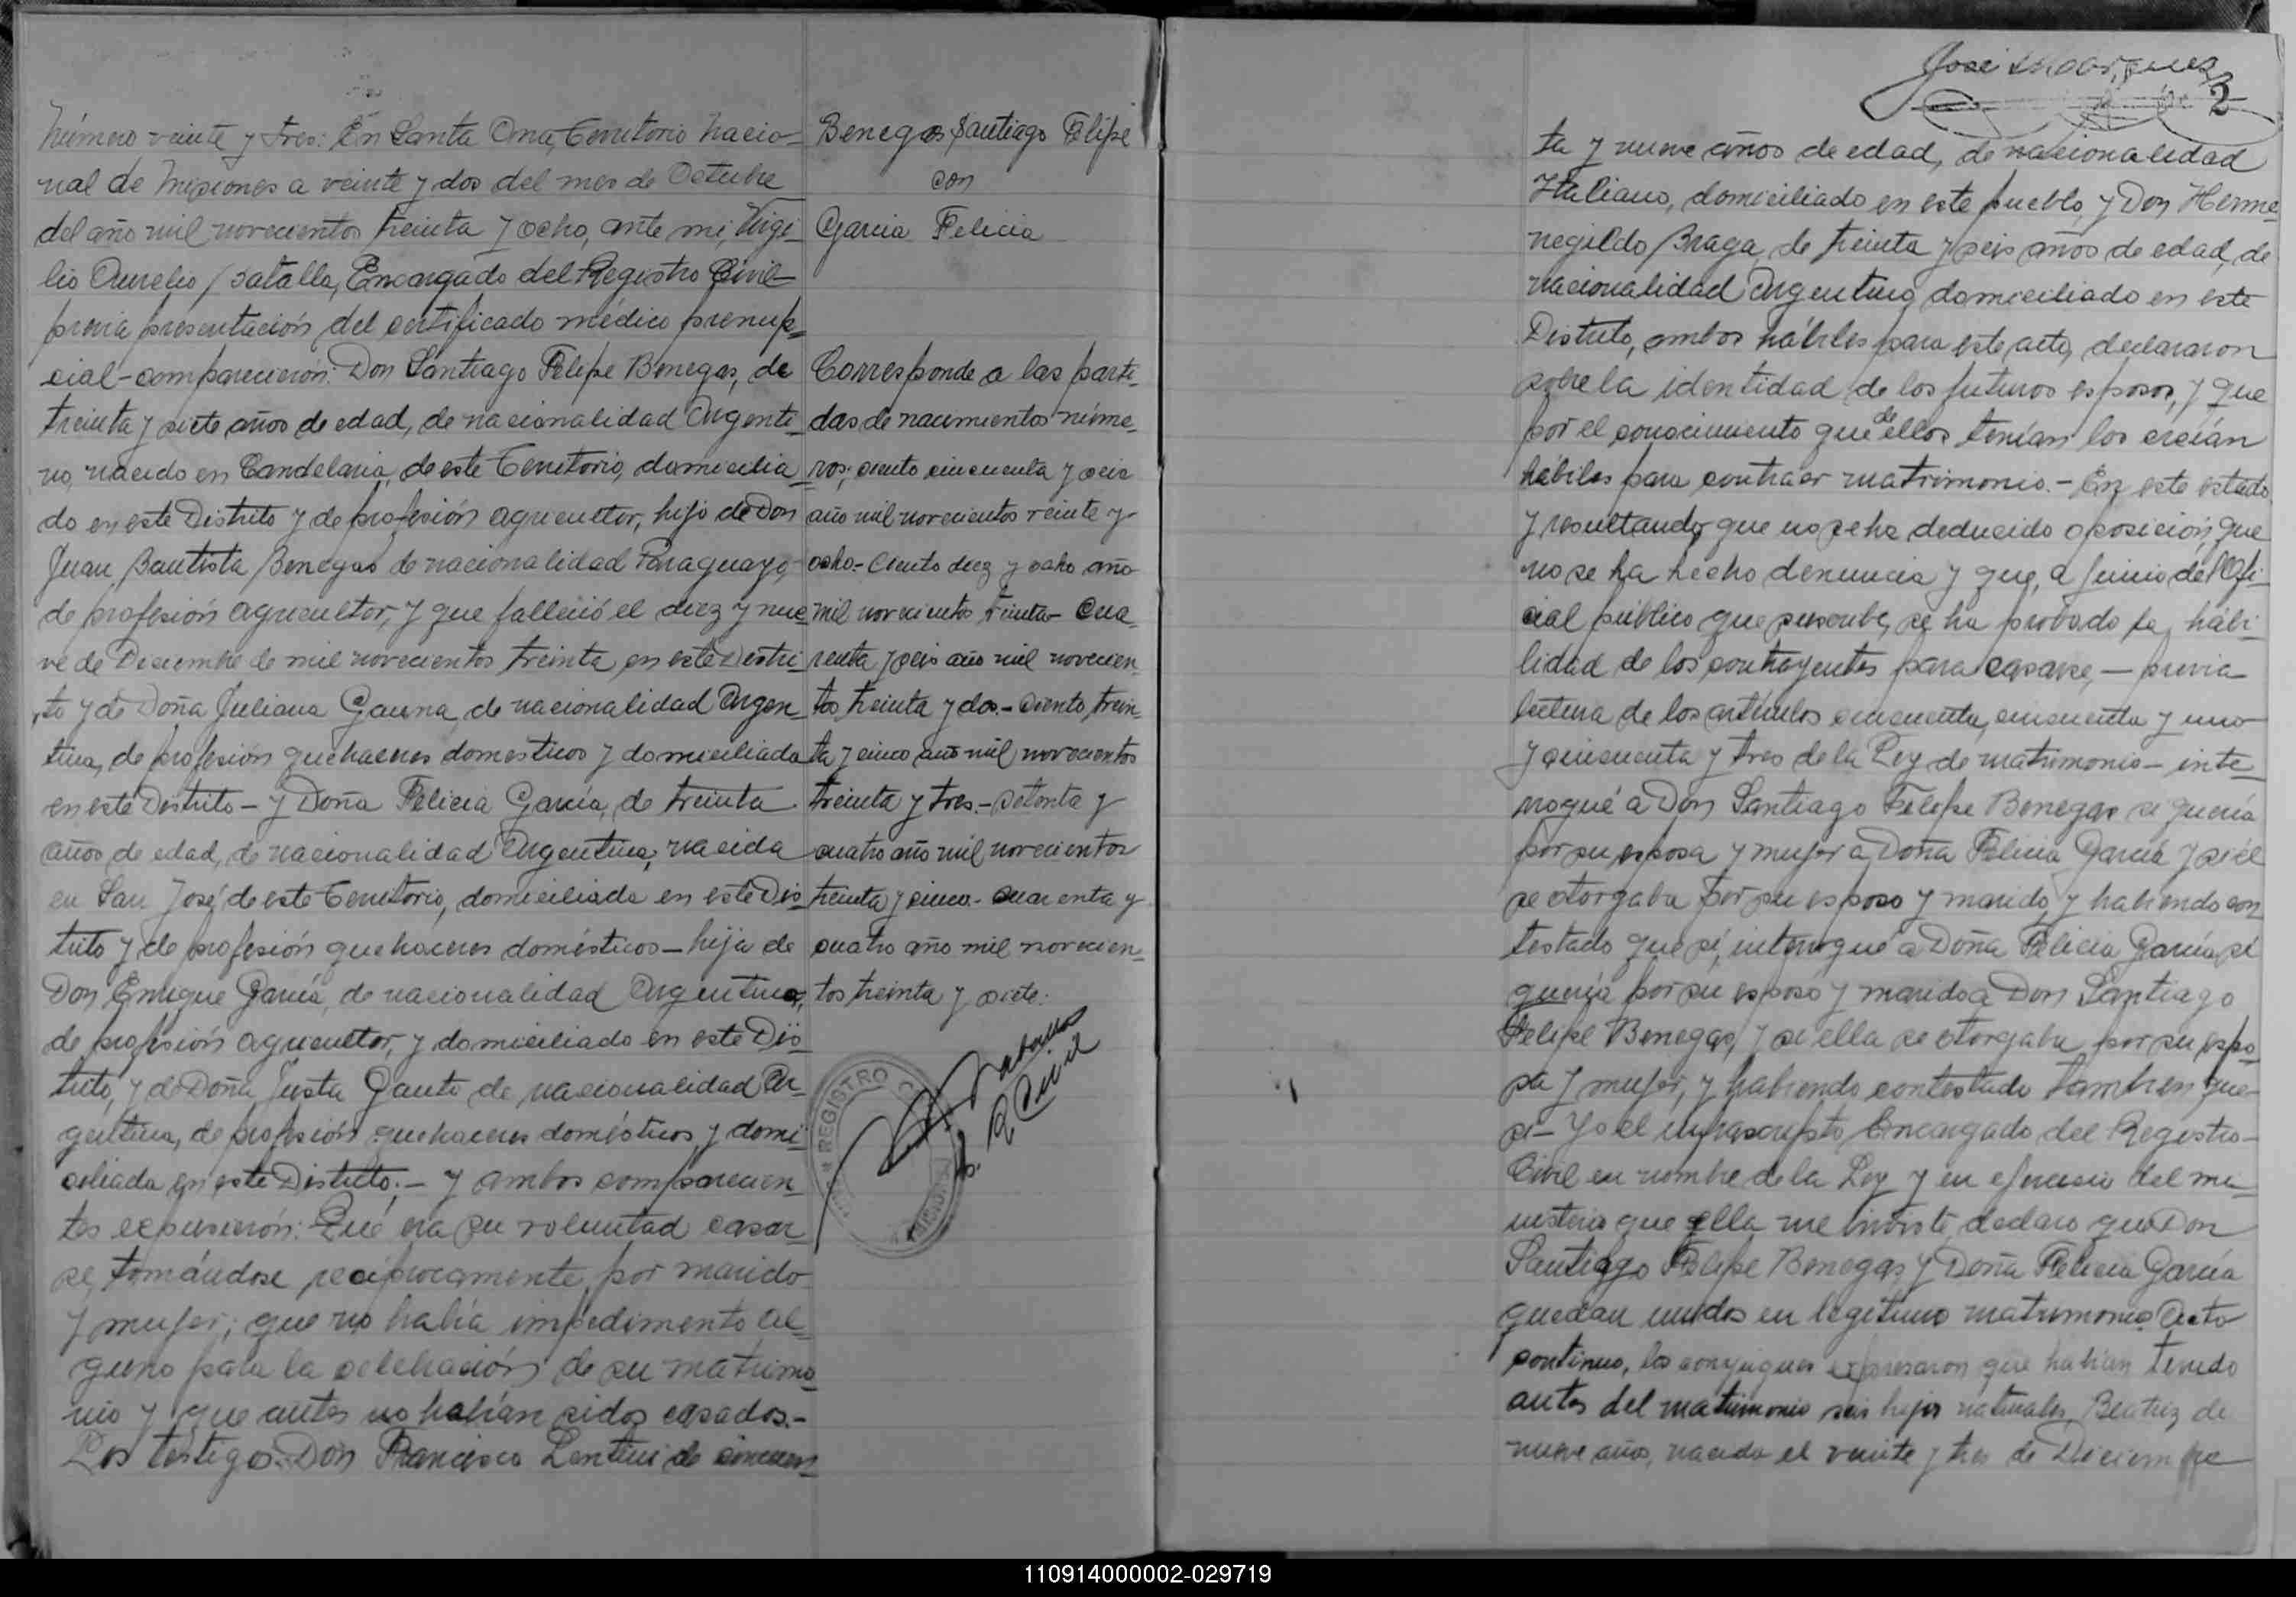 Número veinte y tres: En Santa Ana, Territorio Nacio-
nal de Misiones a veinte y dos del mes de Octubre
del año mil novecientos treinta y ocho, ante mi, Virgi-
lio Aurelio Batalla, Encargado del Registro Civil-
previa presentación del certificado médico prenup-
cial-comparecieron: Don Santiago Felipe Benegas, de
treinta y siete años de edad, de nacionalidad Argenti-
no, nacido en Candelaria, de este Territorio, domicilia-
do en este Distrito y de profesión agricultor, hijo de Don
Juan Bautista Benegas de nacionalidad Paraguayo,
de profesión agricultor, y que falleció el diez y nue-
ve de Diciembre de mil novecientos treinta en este Distri-
to y de Doña Juliana Gauna, de nacionalidad Argen-
tina, de profesión quehaceres domesticos y domiciliada
en este Distrito - y Doña Felicia García, de treinta
años de edad, de nacionalidad Argentina, nacida
en San José, de este Territorio, domiciliada en este Dis-
trito y de profesión quehaceres domésticos - hija de
Don Enrique García, de nacionalidad Argentino,
de profesión agricultor, y domiciliado en este Dis-
trito, y de Doña Justa Gaute de nacionalidad Ar-
gentina, de profesión quehaceres domésticos y domi-
ciliada en este Distrito.- y ambos comparecien-
tes expusieron: Que era su voluntad casar-
se, tomándose recíprocamente, por marido
y mujer; que no había impedimento al-
guno para la celebración de su matrimo-
nio y que antes no habían sidos casados.-
Los testigos: Don Francisco Lentini de cincuen-
Benegas Santiago Felipe
con
Garcia Felicia
Corresponde a las parti-
das de nacimientos núme-
ros: ciento cincuenta y seis
año mil novecientos veinte y
ocho.- Ciento diez y ocho año
mil novecientos treinta- Cua-
renta y seis año mil novecien-
tos treinta y dos.- Ciento trein-
ta y cinco año mil novecientos
treinta y tres.- Setenta y
cuatro año mil novecientos
treinta y cinco.- Cuarenta y
cuatro año mil novecien-
tos treinta y siete.
REGISTRO
R Civil
José
2
ta y nueve años de edad, de nacionalidad
Italiano, domiciliado en este pueblo y Don Herme-
negildo Braga, de treinta y seis años de edad, de
nacionalidad Argentino, domiciliado en este
Distrito, ambos hábiles para este acto, declararon
sobre la identidad de los futuros esposos, y que
por el conocimiento que de ellos tenían los creían
hábiles para contraer matrimonio.- En este estado
y resultando que no se ha deducido oposición, que
no se ha hecho denuncia y que, a juicio del Ofi-
cial público que suscribe, se ha probado la habi-
lidad de los contrayentes para casarse, - previa
lectura de los artículos cincuenta, cincuenta y uno
y cincuenta y tres de la Ley de matrimonio - inte-
rrogué a Don Santiago Felipe Benegas si quería
por su esposa y mujer a Doña Felicia García y si él
se otorgaba por su esposo y marido, y habiendo con-
testado que sí, interrogué a Doña Felicia García, si
quería por su esposo y marido a Don Santiago
Felipe Benegas, y si ella se otorgaba por su espo-
sa y mujer, y habiendo contestado tambien que
sí - Yo el infrascripto Encargado del Registro
Civil en nombre de la Ley y en ejercicio del mi-
nisterio que ella me inviste, declaro que Don
Santiago Felipe Benegas y Doña Felicia García
quedan unidos en legitimo matrimonio. Acto
continuo, los conyugues expresaron que habían tenido
antes del matrimonio seis hijos naturales, Beatriz, de
nueve años, nacida el veinte y tres de Diciembre
110914000002-029719